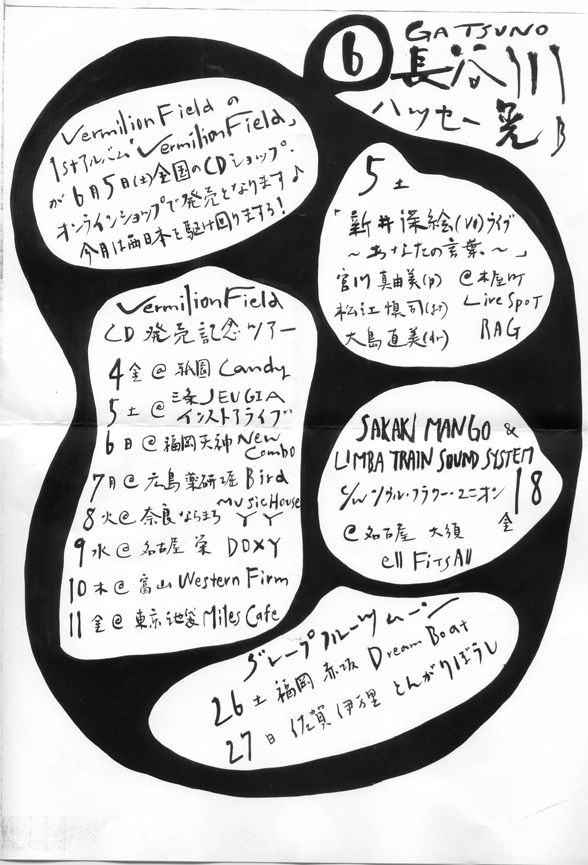 6
GATSUNO
長谷川
ハッセー 晃 B
Vermilion Field の
1stアルバム「Vermilion Field」
が6月5日(土)全国のCDショップ・
オンラインショップで発売となります♪
今月は西日本を駆け回りますろ!
Vermilion Field
CD 発売記念ツアー
4 金 @ 祇園 Candy
5 土 @ 三条JEUGIA
インストアライブ
6 日 @ 福岡天神 New
Combo
7 月 @ 広島薬研堀 Bird
8 火 @ 奈良ならまち MUSIC House
YY
9 水 @ 名古屋 栄 DOXY
10 木 @ 富山 Western Firm
11 金 @ 東京池袋 Miles Cafe
5 土
「新井深絵(vo)ライブ
~あなたの言葉。~」
宮川真由美(p) @木屋町
松江慎司(gt) Live SpoT
大島直美(dr) RAG
SAKAKI MANGO &
LIMBA TRAIN SOUND SYSTEM
c/w ソウル・フラワー・ユニオン 18
金
@ 名古屋 大須
ell FiTS All
グレープフルーツムーン
26 土 福岡 赤坂 Dream Boat
27 日 佐賀 伊万里 とんがりぼうし